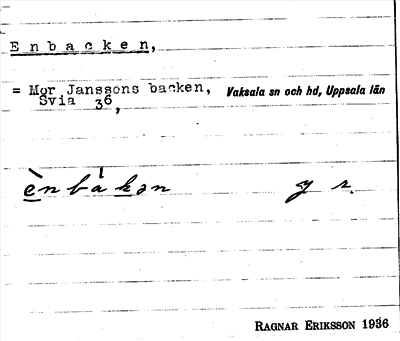 Enbacken,
= Mor Janssons backen, Vaksala sn och hd, Uppsala län
Svia 36,
ènbákən y r.
RAGNAR ERIKSSON 1936